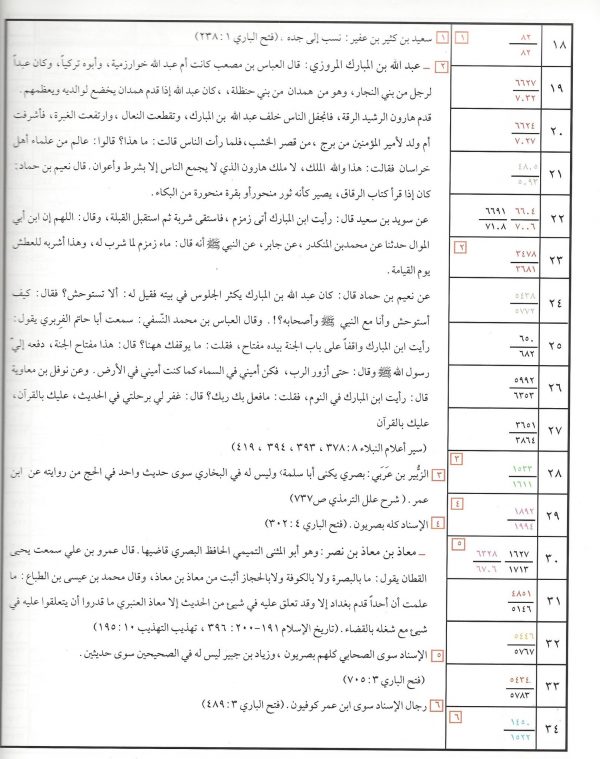 ١ سعيد بن كثير بن عفير: نسب إلى جده. (فتح الباري ١: ٢٣٨)
٢ ــ عبد الله بن المبارك المروزي: قال العباس بن مصعب كانت أم عبد الله خوارزمية، وأبوه تركياً، وكان عبداً
لرجل من بني النجار، وهو من همدان من بني حنظلة، ، كان عبد الله إذا قدم همدان يخضع لوالديه ويعظمهم.
قدم هارون الرشيد الرقة، فانجفل الناس خلف عبد الله بن المبارك، وتقطعت النعال ، وارتفعت الغبرة، فأشرفت
أم ولد لأمير المؤمنين من برج ، من قصر الخشب، فلما رأت الناس قالت: ما هذا؟ قالوا: عالم من علماء أهل
خراسان فقالت: هذا والله الملك، لا ملك هارون الذي لا يجمع الناس إلا بشرط وأعوان. قال نعيم بن حماد:
كان إذا قرأ كتاب الرقاق، يصير كأنه ثور منحور أو بقرة منحورة من البكاء.
عن سويد بن سعيد قال: رأيت ابن المبارك أتى زمزم ، فاستقى شربة ثم استقبل القبلة، وقال: اللهم إن ابن أبي
الموال حدثنا عن محمد بن المنكدر ، عن جابر، عن النبي ﷺ أنه قال: ماء زمزم لما شرب له، وهذا أشربه للعطش
يوم القيامة.
عن نعيم بن حماد قال: كان عبد الله بن المبارك يكثر الجلوس في بيته فقيل له: ألا تستوحش؟ فقال: كيف
أستوحش وأنا مع النبي ﷺ وأصحابه؟!. وقال العباس بن محمد النسفي: سمعت أبا حاتم الفربري يقول:
رأيت ابن المبارك واقفاً على باب الجنة بيده مفتاح، فقلت: ما يوقفك ههنا؟ قال: هذا مفتاح الجنة، دفعه إليّ
رسول الله ﷺ وقال: حتى أزور الرب، فكن أميني في السماء كما كنت أميني في الأرض. وعن نوفل بن معاوية
قال: رأيت ابن المبارك في النوم، فقلت: مافعل بك ربك؟ قال: غفر لي برحلتي في الحديث، عليك بالقرآن،
عليك بالقرآن
(سير أعلام النبلاء ٨: ٣٧٨ ، ٣٩٣ ، ٣٩٤ ، ٤١٩)
٣ الزُّبير بن عَرَبي: بصري يكنى أبا سلمة، وليس له في البخاري سوى حديث واحد في الحج من روايته عن ابن
عمر. ( شرح علل الترمذي ص٧٣٧)
٤ الإسناد كله بصريون. (فتح الباري ٤: ٣٠٢)
ــ معاذ بن معاذ بن نصر: وهو أبو المثنى التميمي الحافظ البصري قاضيها. قال عمرو بن علي سمعت يحيى
القطان يقول: ما بالبصرة ولا بالكوفة ولا بالحجاز أثبت من معاذ بن معاذ، وقال محمد بن عيسى بن الطباع: ما
علمت أن أحداً قدم بغداد إلا وقد تعلق عليه في شيئ من الحديث إلا معاذ العنبري ما قدروا أن يتعلقوا عليه في
شيئ مع شغله بالقضاء. (تاريخ الإسلام ١٩١-٢٠٠: ٣٩٦ ، تهذيب التهذيب ١٠: ١٩٥)
٥ الإسناد سوى الصحابي كلهم بصريون ، وزياد بن جبير ليس له في الصحيحين سوى حديثين.
(فتح الباري ٣: ٧٠٥)
٦ رجال الإسناد سوى ابن عمر كوفيون. (فتح الباري ٣: ٤٨٩)
١٨ ٨٢ ١
٨٢
١٩ ٦٦٢٧
٧٠٣٢
٢٠ ٦٦٢٤
٧٠٢٧
٢١ ٤٨٠٥
٥٠٩٣
٢٢ ٦٦٠٤ ٦٦٩١
٧٠٠٦ ٧١٠٨
٢٣ ٣٤٧٨ ٢
٣٦٨١
٢٤ ٥٤٣٨
٥٧٧٢
٢٥ ٦٥٠
٦٨٢
٢٦ ٥٩٩٢
٦٣٥٣
٢٧ ٣٦٥١
٣٨٦٤
٢٨ ١٥٣٣ ٣
١٦١١
٢٩ ١٨٩٢ ٤
١٩٩٤
٣٠ ١٦٢٧ ٦٣٢٨ ٥
١٧١٣ ٦٧٠٦
٣١ ٤٨٥١
٥١٤٦
٣٢ ٥٤٤٦
٥٧٦٧
٣٣ ٥٤٣٤
٥٧٨٣
٣٤ ١٤٥٠ ٦
١٥٢٢